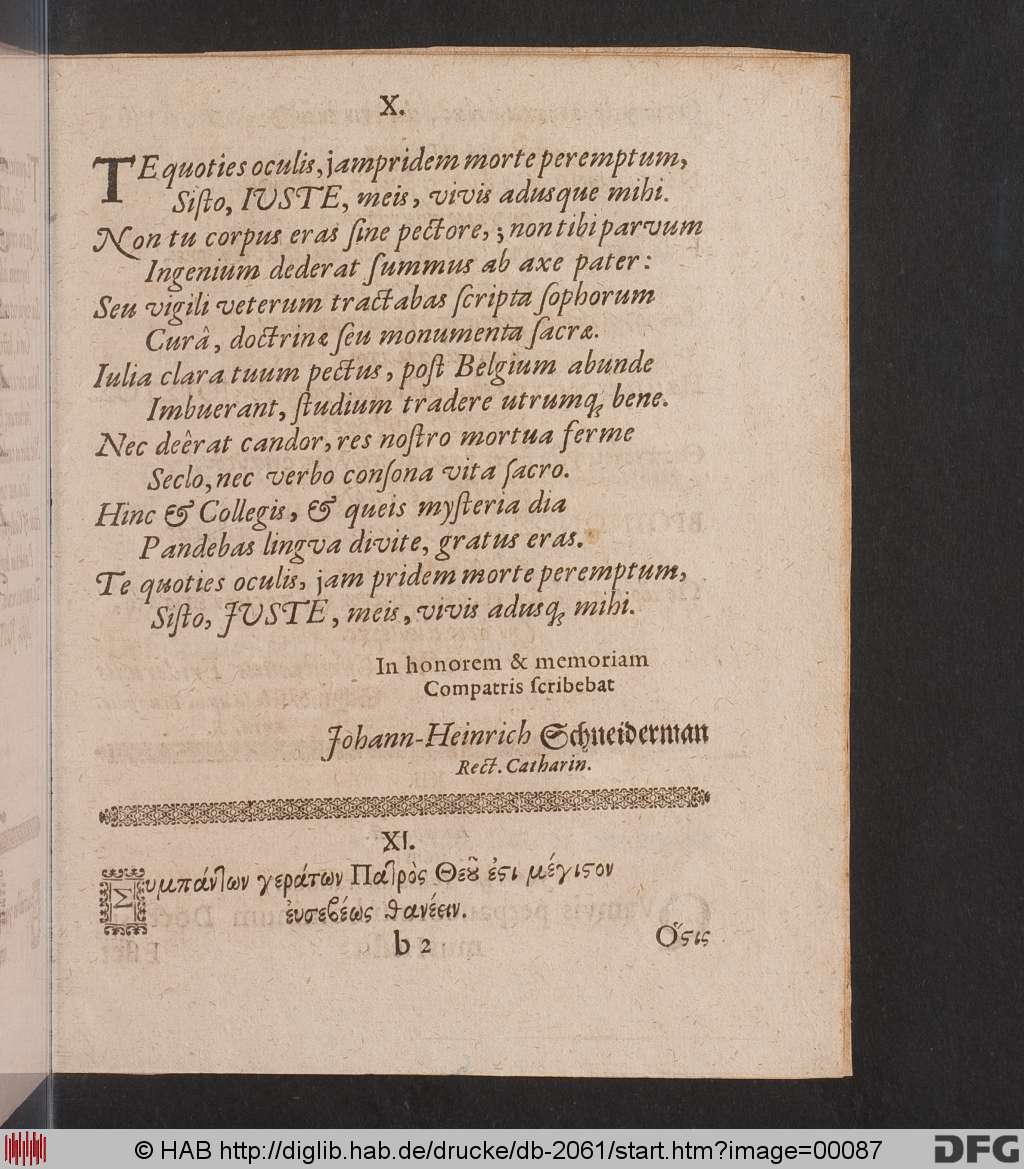 X.
TE quoties oculis, jampridem morte peremptum,
Siſto, IUSTE, meis, vivis adusque mihi.
Non tu corpus eras ſine pectore, ; non tibi parvum
Ingenium dederat ſummus ab axe pater:
Seu vigili veterum tractabas ſcripta ſophorum
Curâ, doctrinæ ſeu monumenta ſacræ.
Iulia clara tuum pectus, poſt Belgium abunde
Imbuerant, ſtudium tradere utrumq́ bene.
Nec deêrat candor, res noſtro mortua ferme
Seclo, nec verbo conſona vita ſacro.
Hinc & Collegis, & queis myſteria dia
Pandebas lingva divite, gratus eras.
Te quoties oculis, jam pridem morte peremptum,
Siſto, JUSTE, meis, vivis adusq́ mihi.
In honorem & memoriam
Compatris ſcribebat
Johann-Heinrich Schneiderman
Rect. Catharin.
XI.
Συμπάντων γεράτων Πατρὸς Θεοῦ ἐςι μέγιςον
ἐυσεβέως θανέειν.
b 2
Ὅςις
© HAB http://diglib.hab.de/drucke/db-2061/start.htm?image=00087
DFG